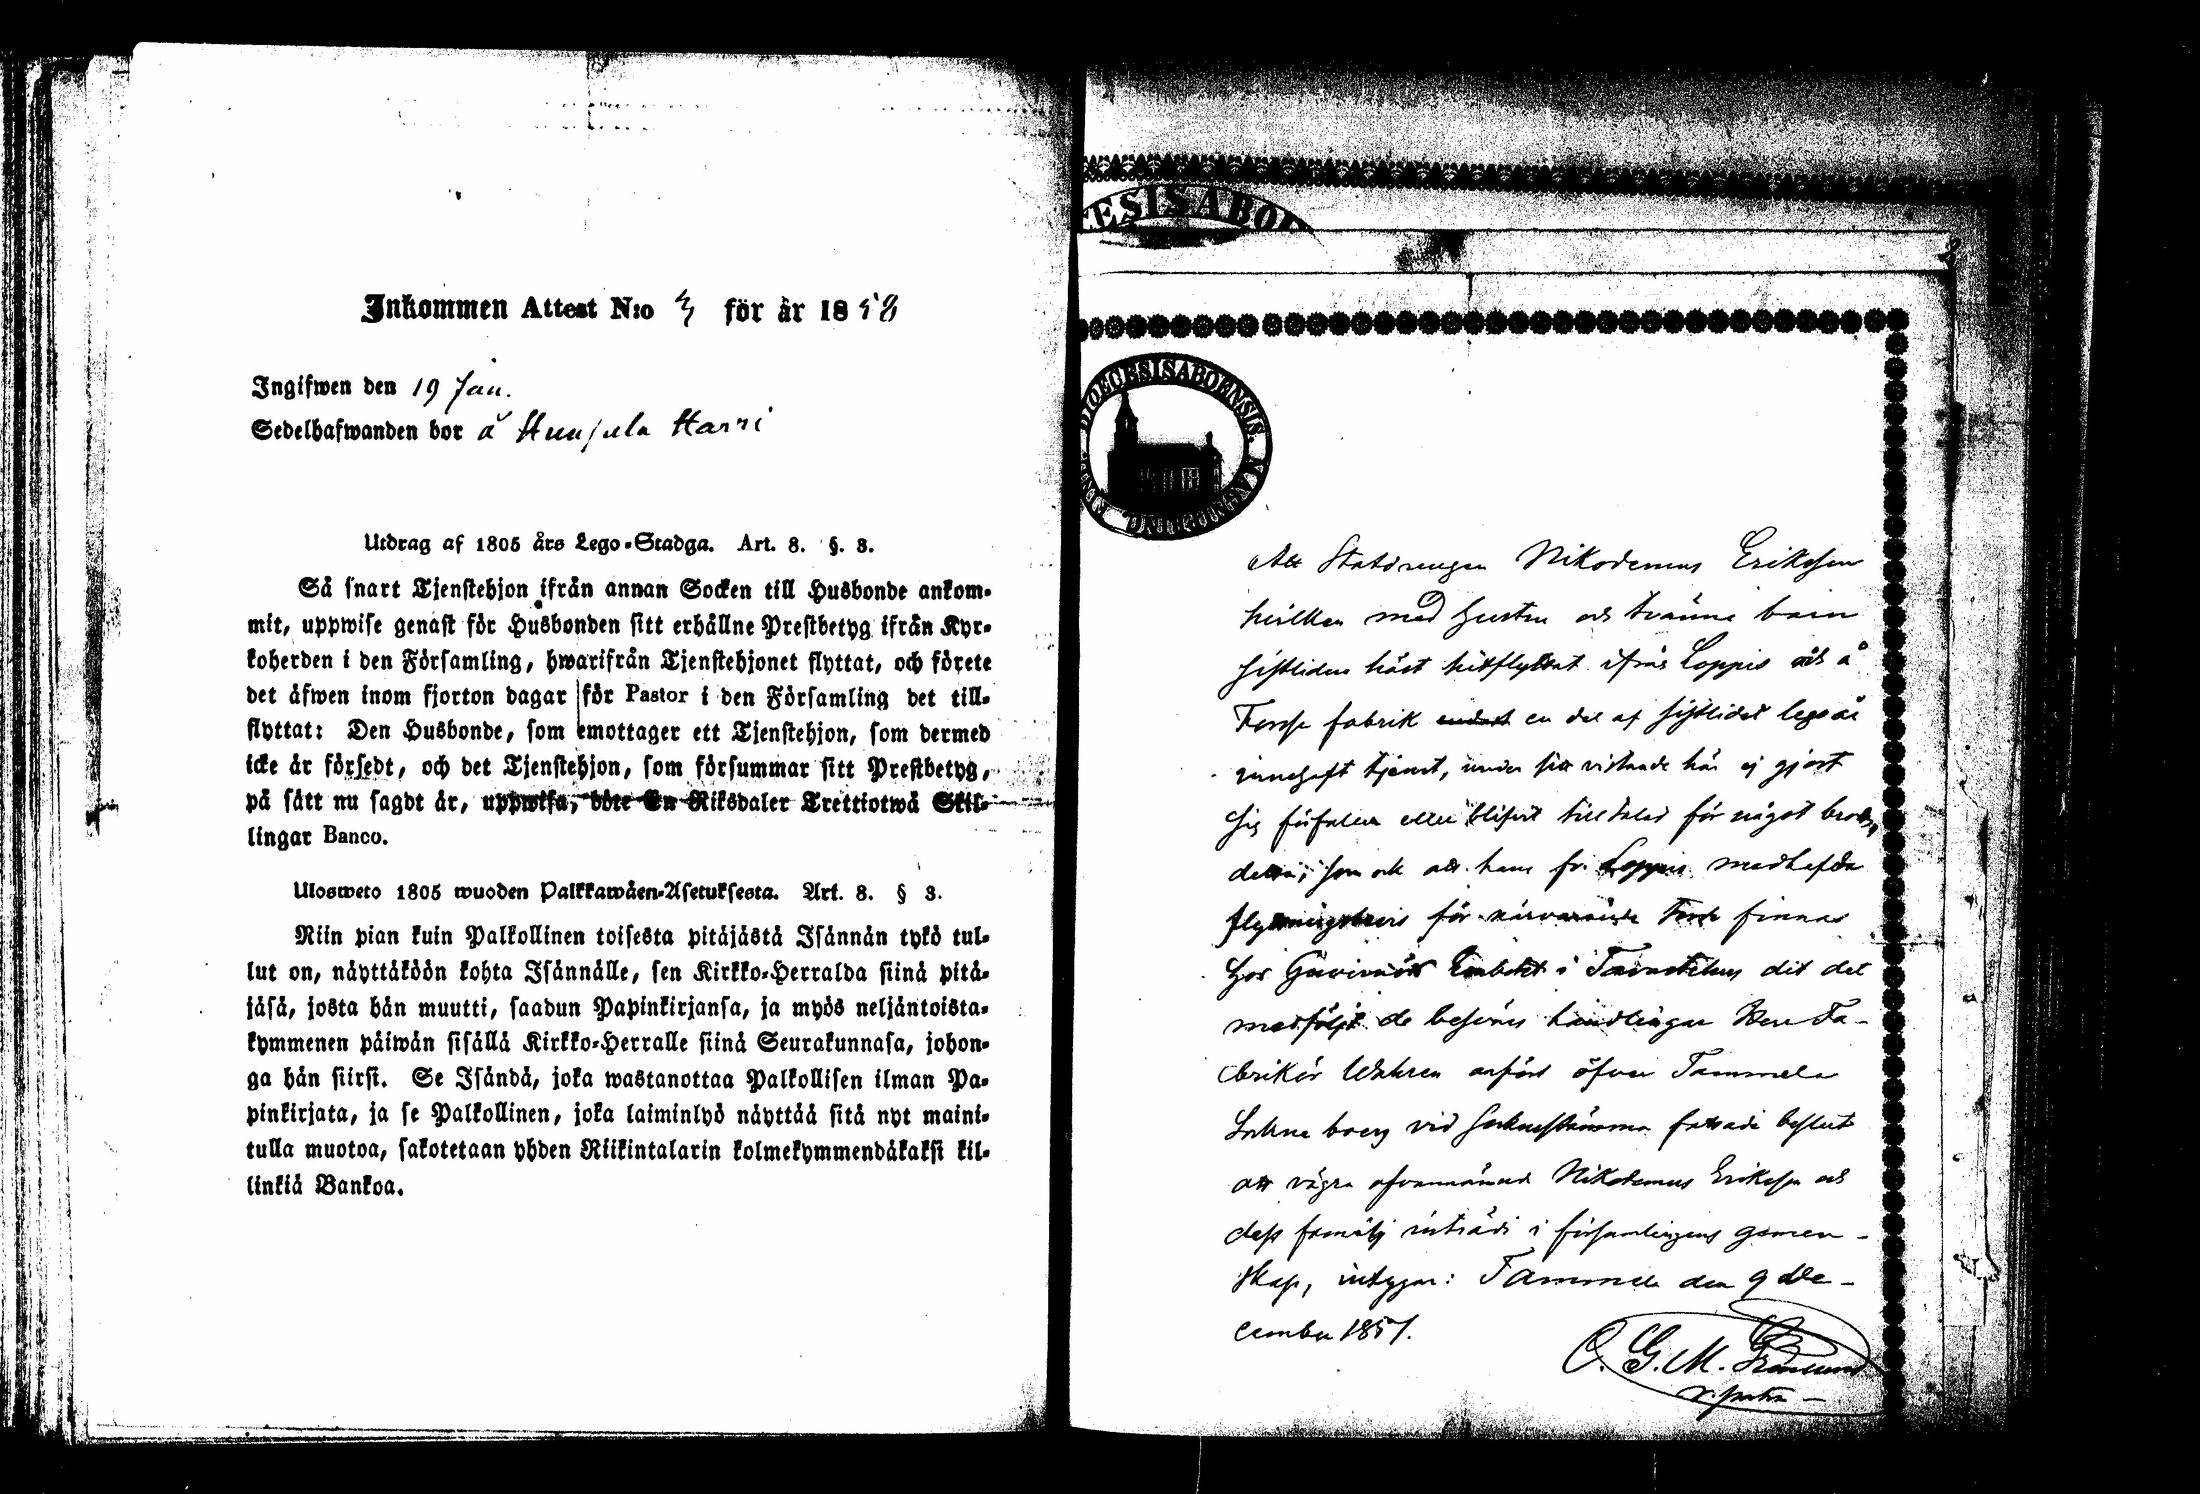 Inkommen Attest N:o 3 för år 1858
Ingifwen den 19 Jan.
Sedelhafwanden bor å Hunjula Harri
Utdrag af 1805 års Lego-Stadga. Art. 8. §. 3.
Så snart Tjenstehjon ifrån annan Socken till Husbonde ankom-
mit, uppwise genast för Husbonden sitt erhållne Prestbetyg ifrån Kyr-
koherden i den Församling, hwarifrån Tjenstehjonet flyttat, och förete
det äfwen inom fjorton dagar för Pastor i den Församling det till-
flyttat: Den Husbonde, som emottager ett Tjenstehjon, som dermed
icke är försedt, och det Tjenstehjon, som försummar sitt Prestbetyg,
på sätt nu sagdt är, uppwisa, böte En Riksdaler Trettiotwå Skil-
lingar Banco.
Ulosweto 1805 wuoden Palkkawäen-Asetuksesta. Art. 8. § 3.
Niin pian kuin Palkollinen toisesta pitäjästä Isännän tykö tul-
lut on, näyttäköön kohta Isännälle, sen Kirkko-Herralda siinä pitä-
jäsä, josta hän muutti, saadun Papinkirjansa, ja myös neljäntoista-
kymmenen päiwän sisällä Kirkko-Herralle siinä Seurakunnasa, johon-
ga hän siirsi. Se Isändä, joka wastanottaa Palkollisen ilman Pa-
pinkirjata, ja se Palkollinen, joka laiminlyö näyttää sitä nyt maini-
tulla muotoa, sakotetaan yhden Riikintalarin kolmekymmendäkaksi kil-
linkiä Bankoa.
ESISABOE
DIOECESISABOENSIS.
Att Statdrengen Nikodemus Eriksson
hvilken med hustru och tvänne barn
sistliden höst hitflyttat ifrån Loppis och å
Forssa fabrik endast en del af sistlidet legoår
innehaft tjenst, under sitt vistande här ej gjort
sig förfallen eller blifvit tilltalad för något brott,
som ock att hans fr. Loppis medhafda
flyttningsbevis för närvarande finnas
hos Guvernörs Embetet i Tavastehus dit det
medföljt de besvärs handlingar Herr Fa-
brikör Wahren anfört öfver Tammela
Sockne boers vid Sockenstämma fattade beslut
att vägra ofvannämnde Nikodemus Eriksson och
dess familj inträde i församlingens gemen-
skap, intygar: Tammela den 9 De-
cember 1857.
O. G. M.